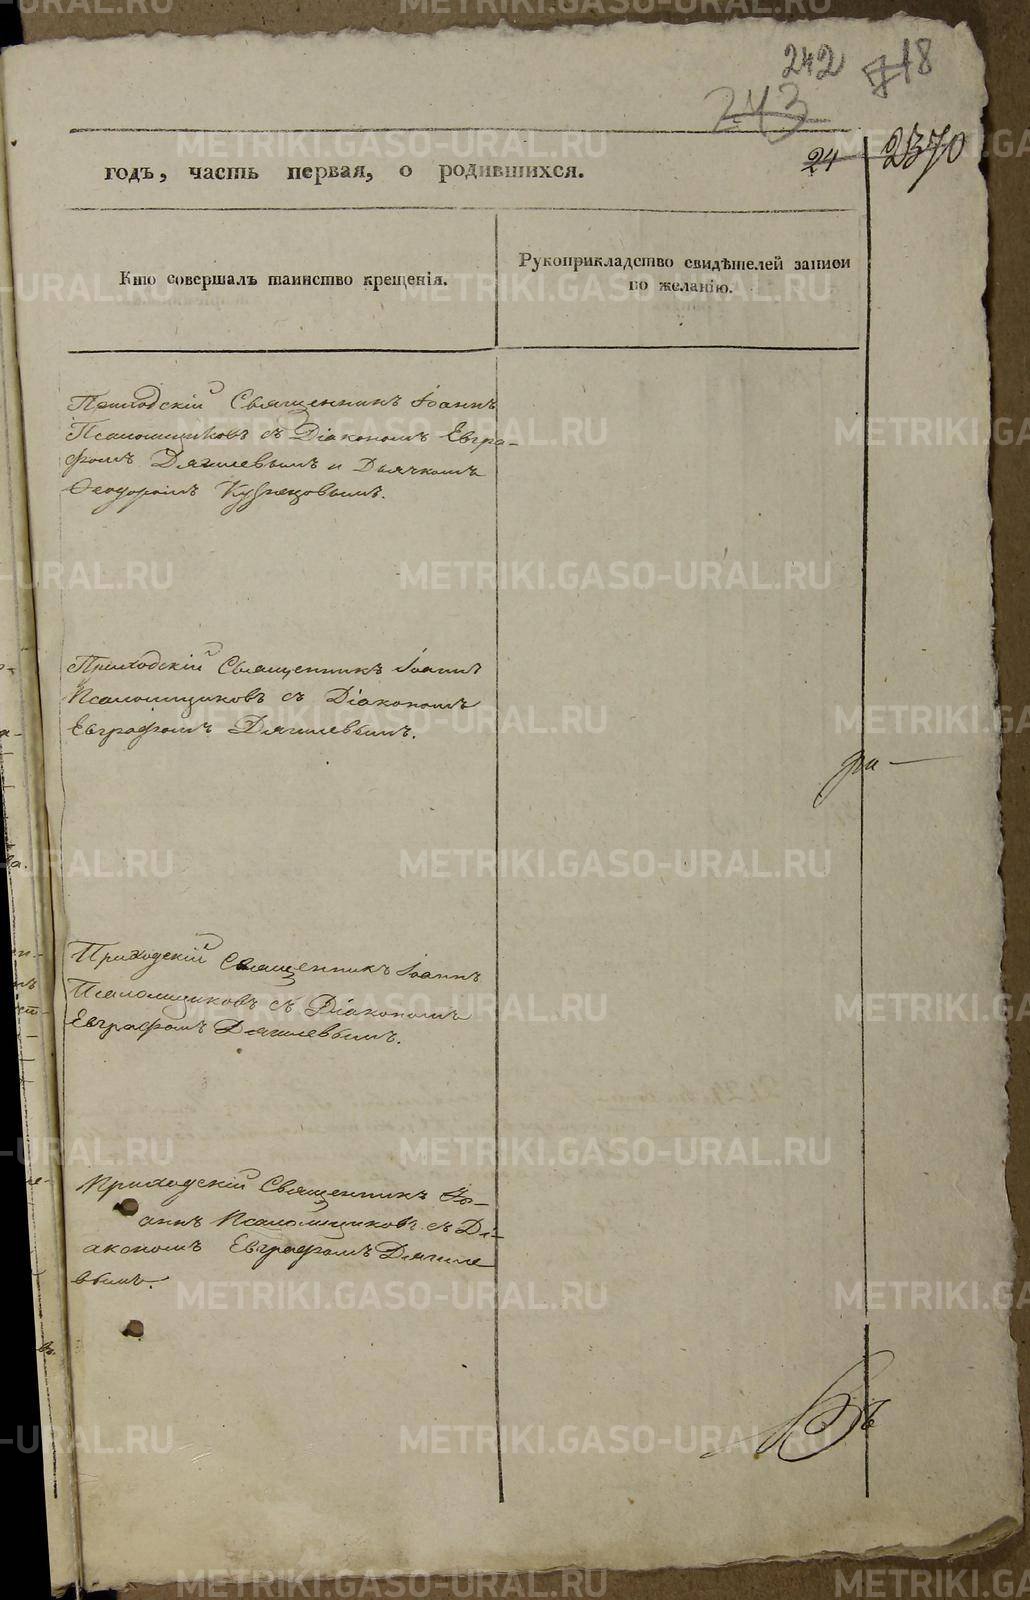 242 718
243
24 2370
годъ, часть первая, о родившихся.
Кто совершалъ таинство крещенія.
Рукоприкладство свидѣтелей записи
по желанію.
Приходскій Священникъ Іоаннъ
Псаломщиковъ съ Діакономъ Евгра-
фомъ Дягилевымъ и Дьячкомъ
Ѳеодоромъ Кузнецовымъ.
Приходскій Священникъ Іоаннъ
Псаломщиковъ съ Діакономъ
Евграфомъ Дягилевымъ.
ра-
Приходскій Священникъ Іоаннъ
Псаломщиковъ съ Діакономъ
Евграфомъ Дягилевымъ.
Приходскій Священникъ Іо-
аннъ Псаломщиковъ съ Ді-
акономъ Евграфомъ Дягиле
вымъ.
METRIKI.GASO-URAL.RU